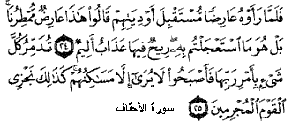 فَلَمَّا رَأَوْهُ عَارِضًا مُّسْتَقْبِلَ أَوْدِيَتِهِمْ قَالُوا۟ هَٰذَا عَارِضٌ مُّمْطِرُنَا ۚ
بَلْ هُوَ مَا ٱسْتَعْجَلْتُم بِهِۦ ۖ رِيحٌ فِيهَا عَذَابٌ أَلِيمٌ ﴿٢٤﴾ تُدَمِّرُ كُلَّ
شَىْءٍۭ بِأَمْرِ رَبِّهَا فَأَصْبَحُوا۟ لَا يُرَىٰٓ إِلَّا مَسَٰكِنُهُمْ ۚ كَذَٰلِكَ نَجْزِى
ٱلْقَوْمَ ٱلْمُجْرِمِينَ ﴿٢٥﴾ سورة الأحقاف